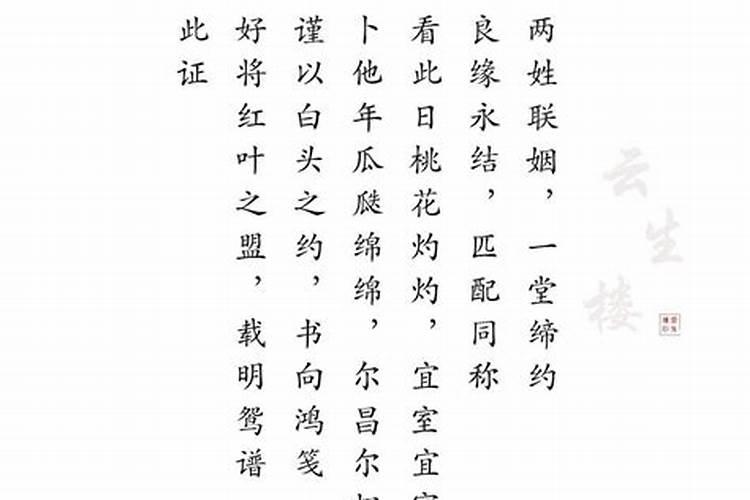 两姓联姻，一堂缔约
良缘永结，匹配同称
看此日桃花灼灼，宜室宜
卜他年瓜瓞绵绵，尔昌尔
谨以白头之约，书向鸿笺
好将红叶之盟，载明鸳谱
此证
云生楼